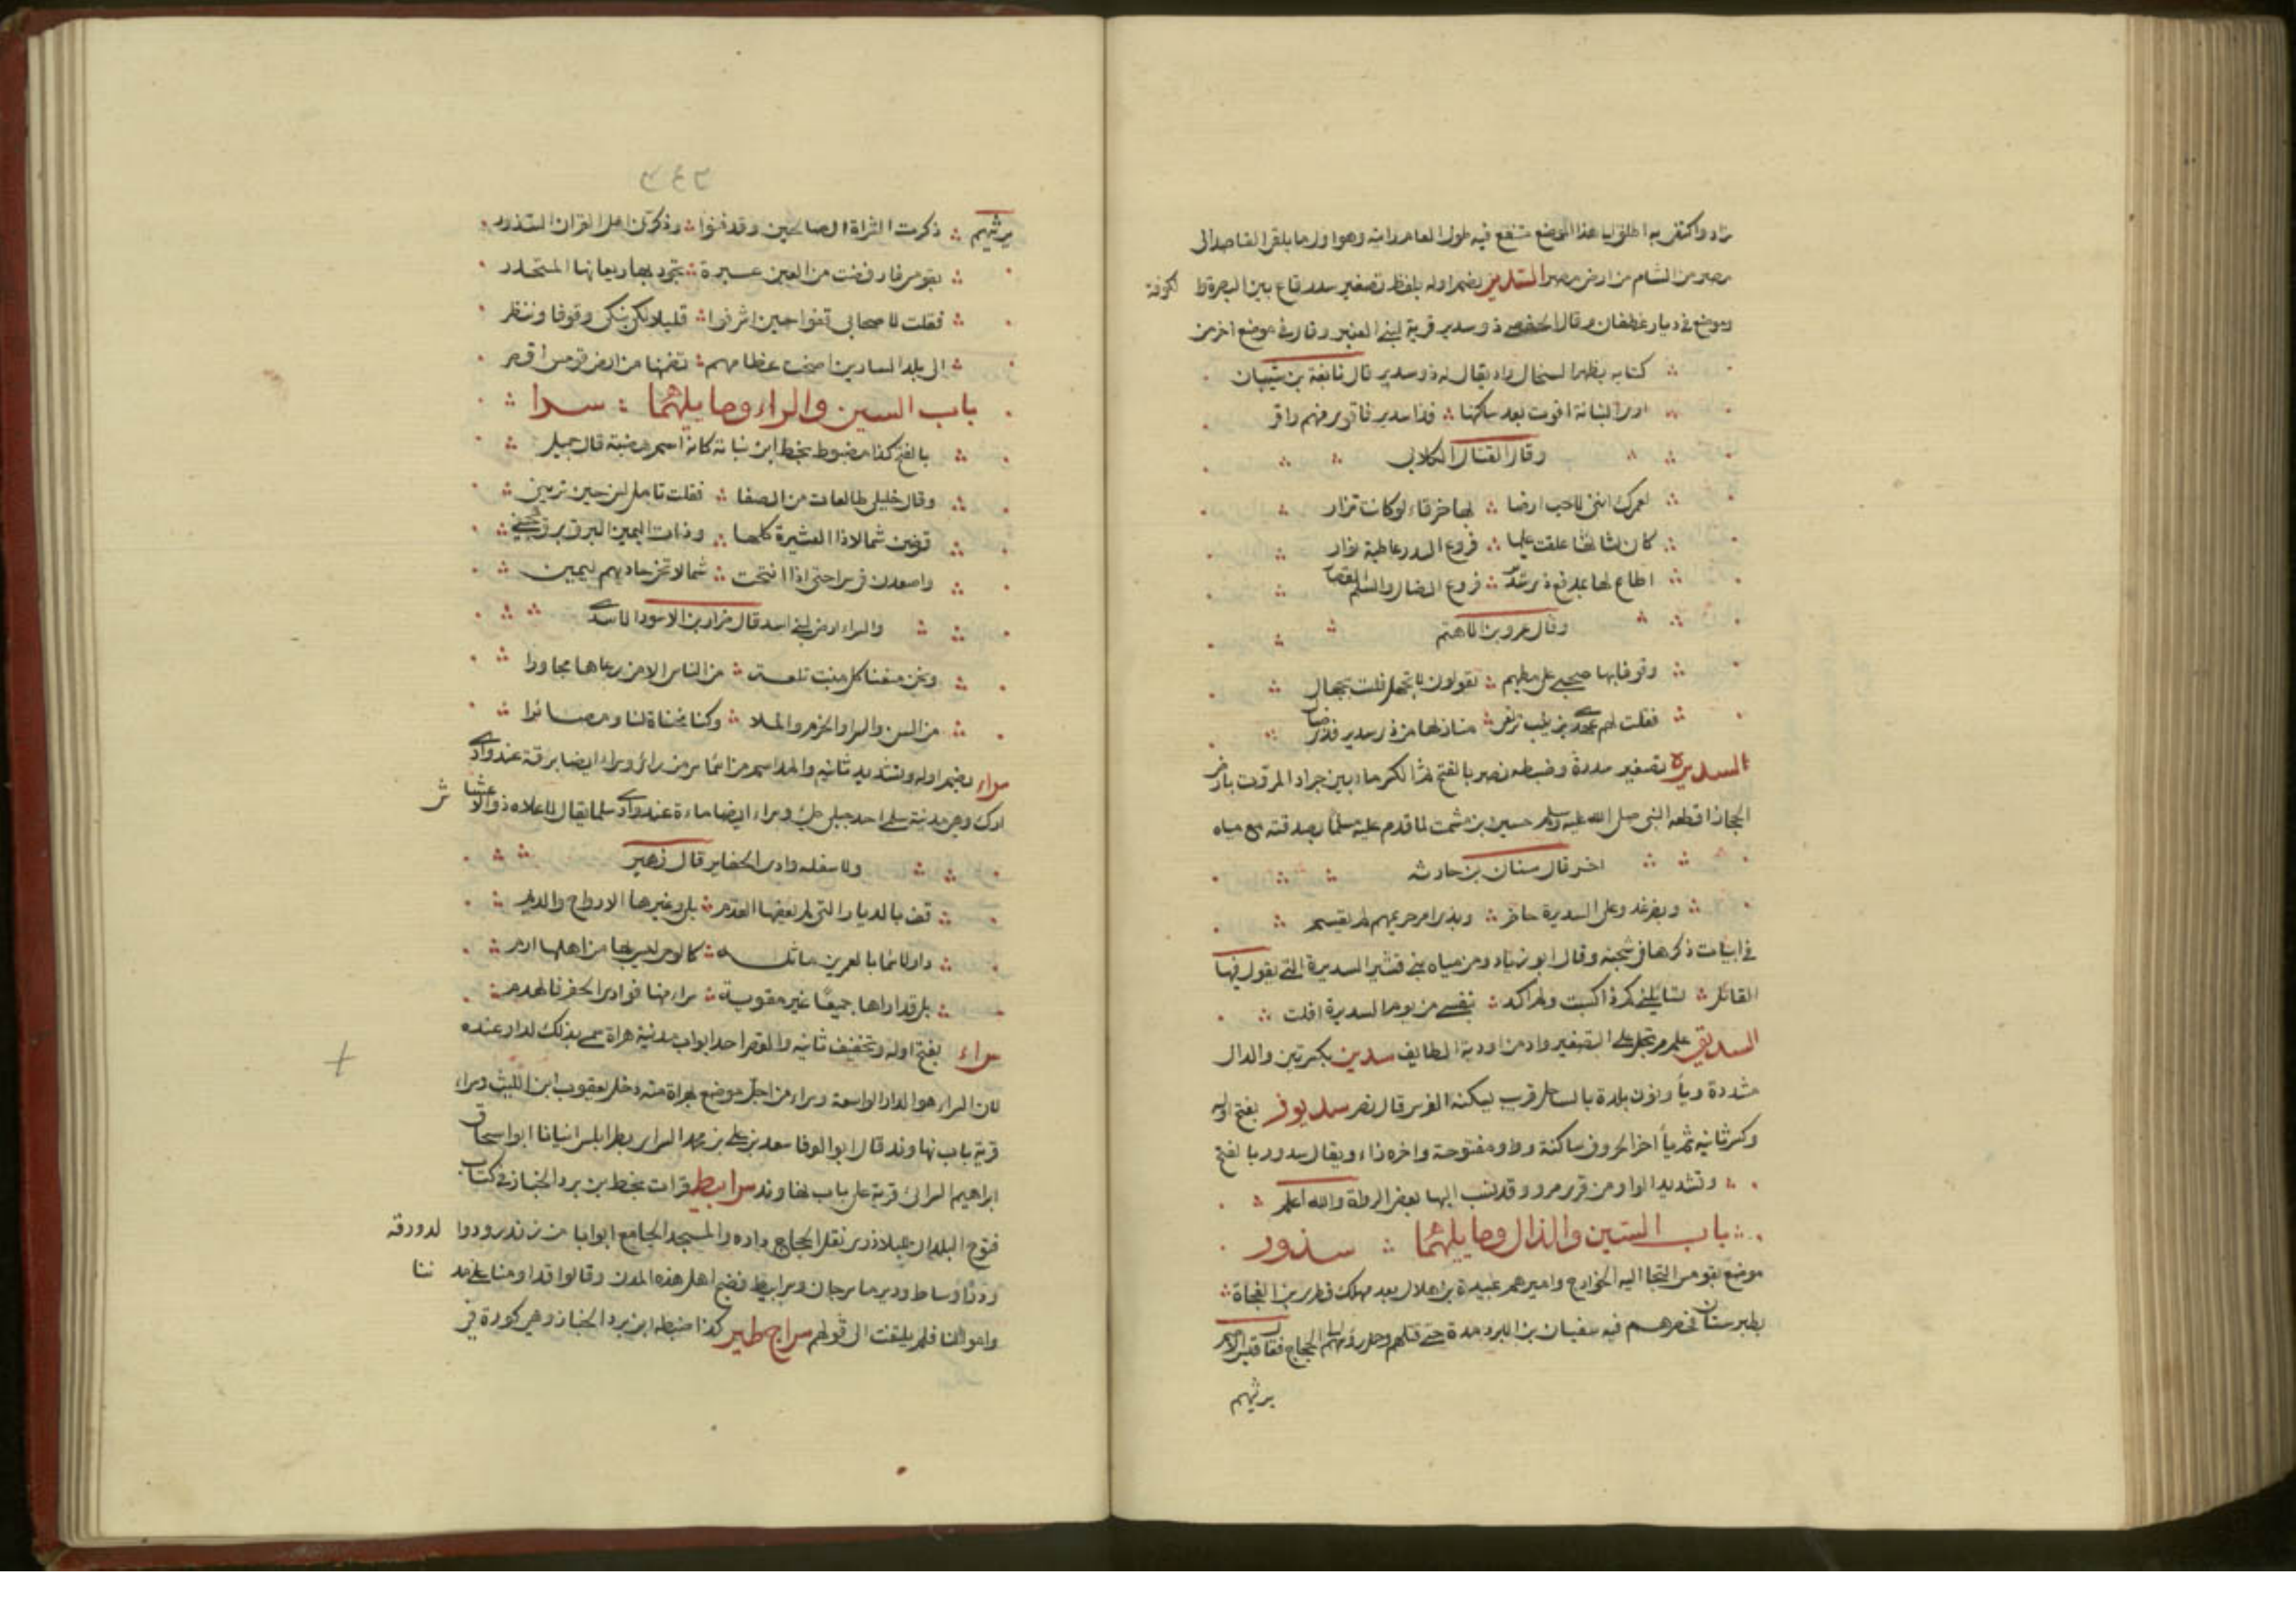 مصر من الشام من ارض مصر السدير بضم اوله بلفظ تصغير سدر قاع بين البصرة وا لكوفة
وموضع في ديار غطفان وقال الحفصي ذو سدير قرية لبني العنبر وقال في موضع اخر من
كتابه بظهر السخال واد يقال له ذو سدير قال نابغة بن شيبان
ارى البنانة اقوت بعد ساكنها فذا سدير فاقوى منهم اقر
وقال القتال الكلابي
لعمرك انني لاحب ارضا بها خرقاء لو كانت تزار
كان لثاتها علقت عليها فروع السدر عاطية نوار
اطاع لها بمدفع ذي سدير فروع الضال والسلم القصار
وقال عمرو بن الاهتم
وقوفا بها صحبي على مطيهم يقولون لا تجهل ولست بجهال
فقلت لهم عهدي بزينب ترتعي منازلها من ذي سدير فذي ضال
السديرة تصغير سدرة وضبطه نصر بالفتح ثم الكسر ماء بين جراد والمروت بارض
الحجاز اقطعه النبي صلى الله عليه وسلم حصين بن مشمت لما قدم عليه مسلما بصدقته مع مياه
اخر قال سنان بن حارثه
وبضرغد وعلى السديرة حاضر وبذي امر حريمهم لم يقسم
في ابيات ذكرها في شجنه وقال ابو زياد ومن مياه بني قشير السديرة التي يقول فيها
القائل نفسي من يوم السديرة افلت
السديق علم مرتجل على التصغير واد من اودية الطايف سدين بكسرتين والدال
مشددة ويا ونون بلدة بالساحل قريب يسكنه الفرس قال نصر سديور بفتح اوله
وكسر ثانيه ثم يا اخر الحروف ساكنة وواو مفتوحة واخره راء ويقال سدور بالفتح
وتشديد الواو من قرى مرو وقد نسب اليها بعض الرواة والله اعلم
باب السين والذال وما يليهما سذور
موضع بقومس التجا اليه الخوارج واميرهم عبيدة بن هلال بعد مهلك قطري بن الفجاة
بطبرستان فحصرهم فيه سفيان بن الابرد مدة حتى قتلهم وحمل رؤسهم الى الحجاج فقال
يرثيهم
٢٤٢
يرثيهم ذكرت الشراة الصالحين وقد فنوا وذكرني اهل القران السذور
بقومس فارفضت من العين عبرة يجود بها ريعانها المتحدر
فقلت لاصحابي قفوا حين اشرفوا قليلا لكي نبكي وقوفا وننظر
الى بلد السارين اضحت عظامهم تضمنها من ارض قومس اقصر
باب السين والراء وما يليهما سرا
بالفتح كذا مضبوط بخط ابن نباتة كانه اسم هضبة قال جميل
وقال خليلي طالعات من الصفا فقلت تامل لسن حين تريني
قرضن شمالا ذا العشيرة كلها وذات اليمين البرق برق هجين
واصعدن في سرا حتى اذا انتحت شمالا نحا حاديهم ليمين
والسراء ارض لبني اسد قال ضرار بن الازور الاسدي
ونحن منعنا كل منبت تلعة من الناس الا من رعاها مجاورا
من السر والسراء والحزن والملا وكنا مخنات لنا ومصائرا
سراء بضم اوله وتشديد ثانيه والمد اسم من اسماء سر من راى وسراء ايضا برقة عند وادي
ارك وهي مدينة سلمى احد جبلي طي وسراء ايضا ماءة عند وادي سلمى يقال لاعلاه ذو الاعشاش
ولاسفله وادي الحفاير قال زهير
قف بالديار التي لم يعفها القدم بلى وغيرها الارواح والديم
دار لاسما بالغمرين ماثلة كالوحي ليس بها من اهلها ارم
بل قد اراها جميعا غير مقوية سراء منها فوادي الحفر فالهدم
سراء بفتح اوله وتخفيف ثانيه والقصر احد ابواب مدينة هراة سمي بذلك لدار عنده
لان السراء هو الدار الواسعة وسراء من اجل موضع بهراة منه دخل يعقوب ابن الليث وسراء
قرية باب نهاوند قال ابو الوفا سعد بن علي بن محمد السراي بطرابلس انبانا ابو اسحاق
ابراهيم السرائي قرية على باب نهاوند سرابيط قرات بخط بن برد الخباز في كتاب
فتوح البلدان للبلاذري نقل الحجاج الى داره والمسجد الجامع ابوابا من زندرود والدورقه
ودار وساط ودير ماسرجان وسرابيط فضج اهل هذه المدن وقالوا قد اومنا على مد ننا
واموالنا فلم يلتفت الى قولهم سراج طير كذا ضبطه ابن برد الخباز وهي كورة في